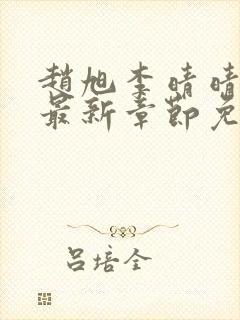 趙旭李晴晴
最新章節免
吕培全